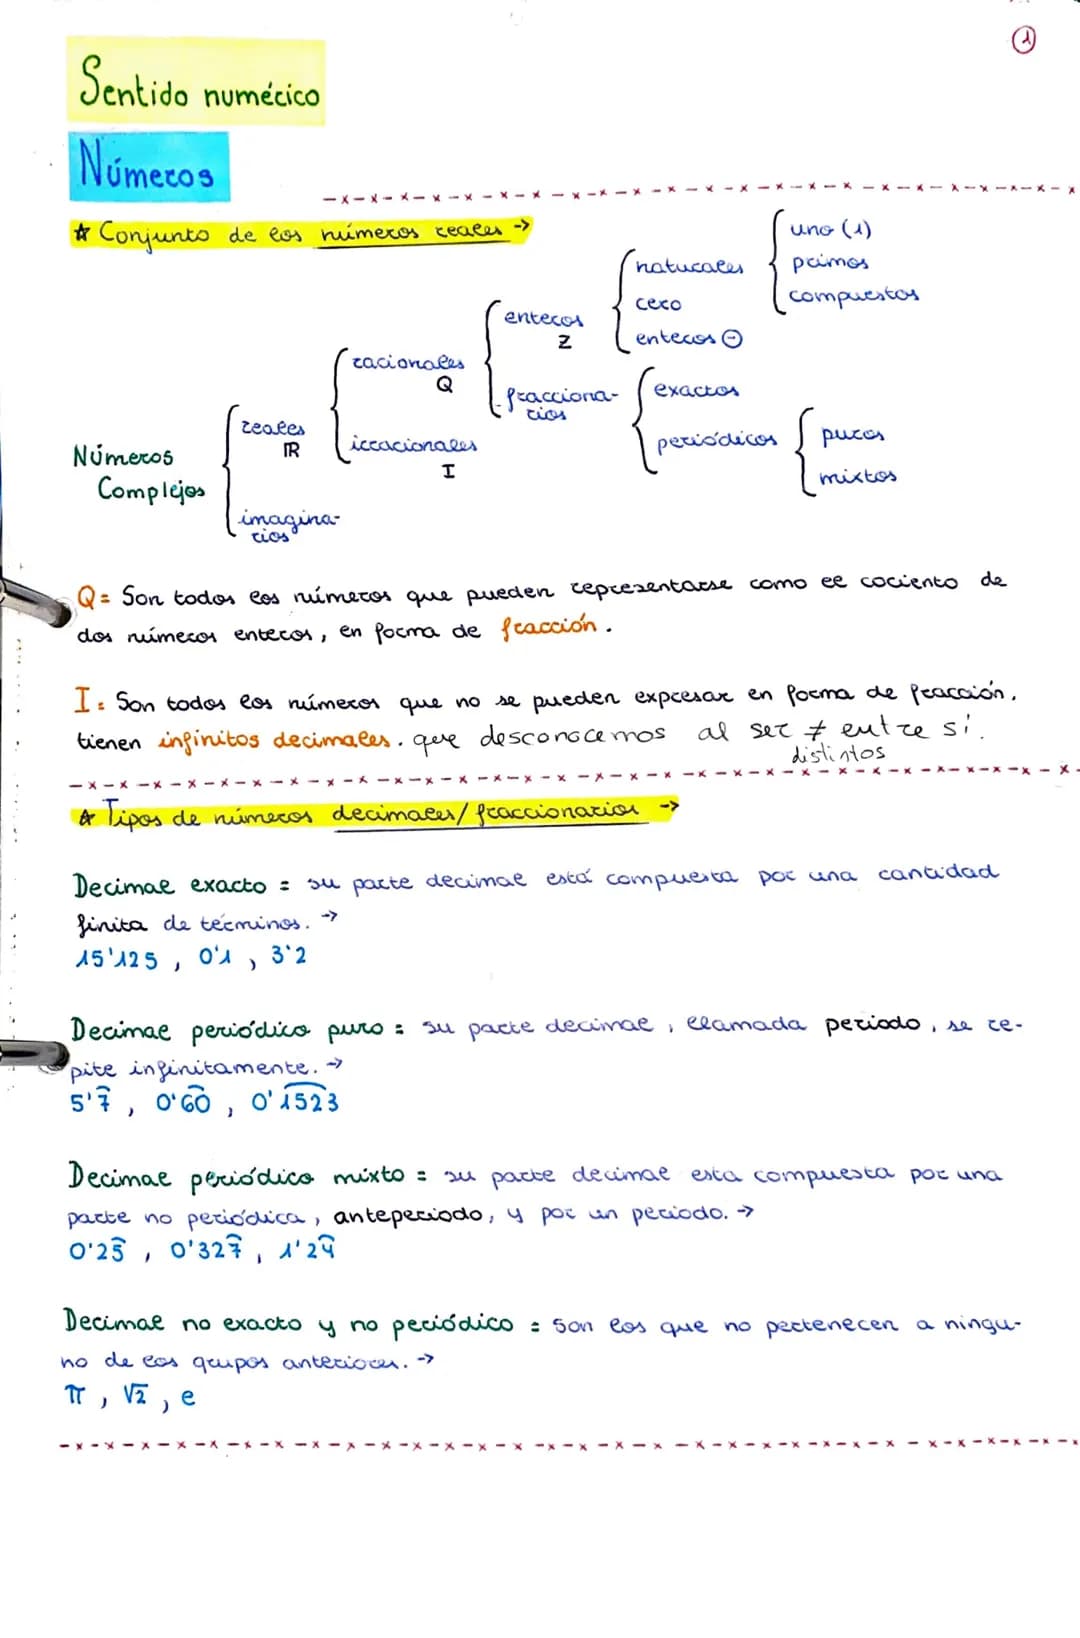 1
Sentido numérico
Números
☆ Conjunto de los números reales →
uno (1)
naturales
primos
compuestos
cero
enteros
Z
enteros ⊖
racionales
Q
fracciona-
rios
exactos
reales
ℝ
irracionales
I
periódicos
puros
mixtos
Números
Complejos
imagina-
rios
Q = Son todos los números que pueden representarse como el cociento de
dos números enteros, en forma de fracción.
I = Son todos los números que no se pueden expresar en forma de fracción,
tienen infinitos decimales. que desconocemos al ser ≠ entre sí.
distintos
☆ Tipos de números decimales/fraccionarios →
Decimal exacto = su parte decimal está compuesta por una cantidad
finita de términos. →
15'125 , 0'1 , 3'2
Decimal periódico puro = su parte decimal, llamada periodo, se re-
pite infinitamente. →
5'7̂ , 0'6̂0̂ , 0'1̂5̂2̂3̂
Decimal periódico mixto = su parte decimal esta compuesta por una
parte no periódica, anteperiodo, y por un periodo. →
0'25̂ , 0'327̂ , 1'24̂
Decimal no exacto y no periódico = son los que no pertenecen a ningu-
no de los grupos anteriores. →
π , √2 , e